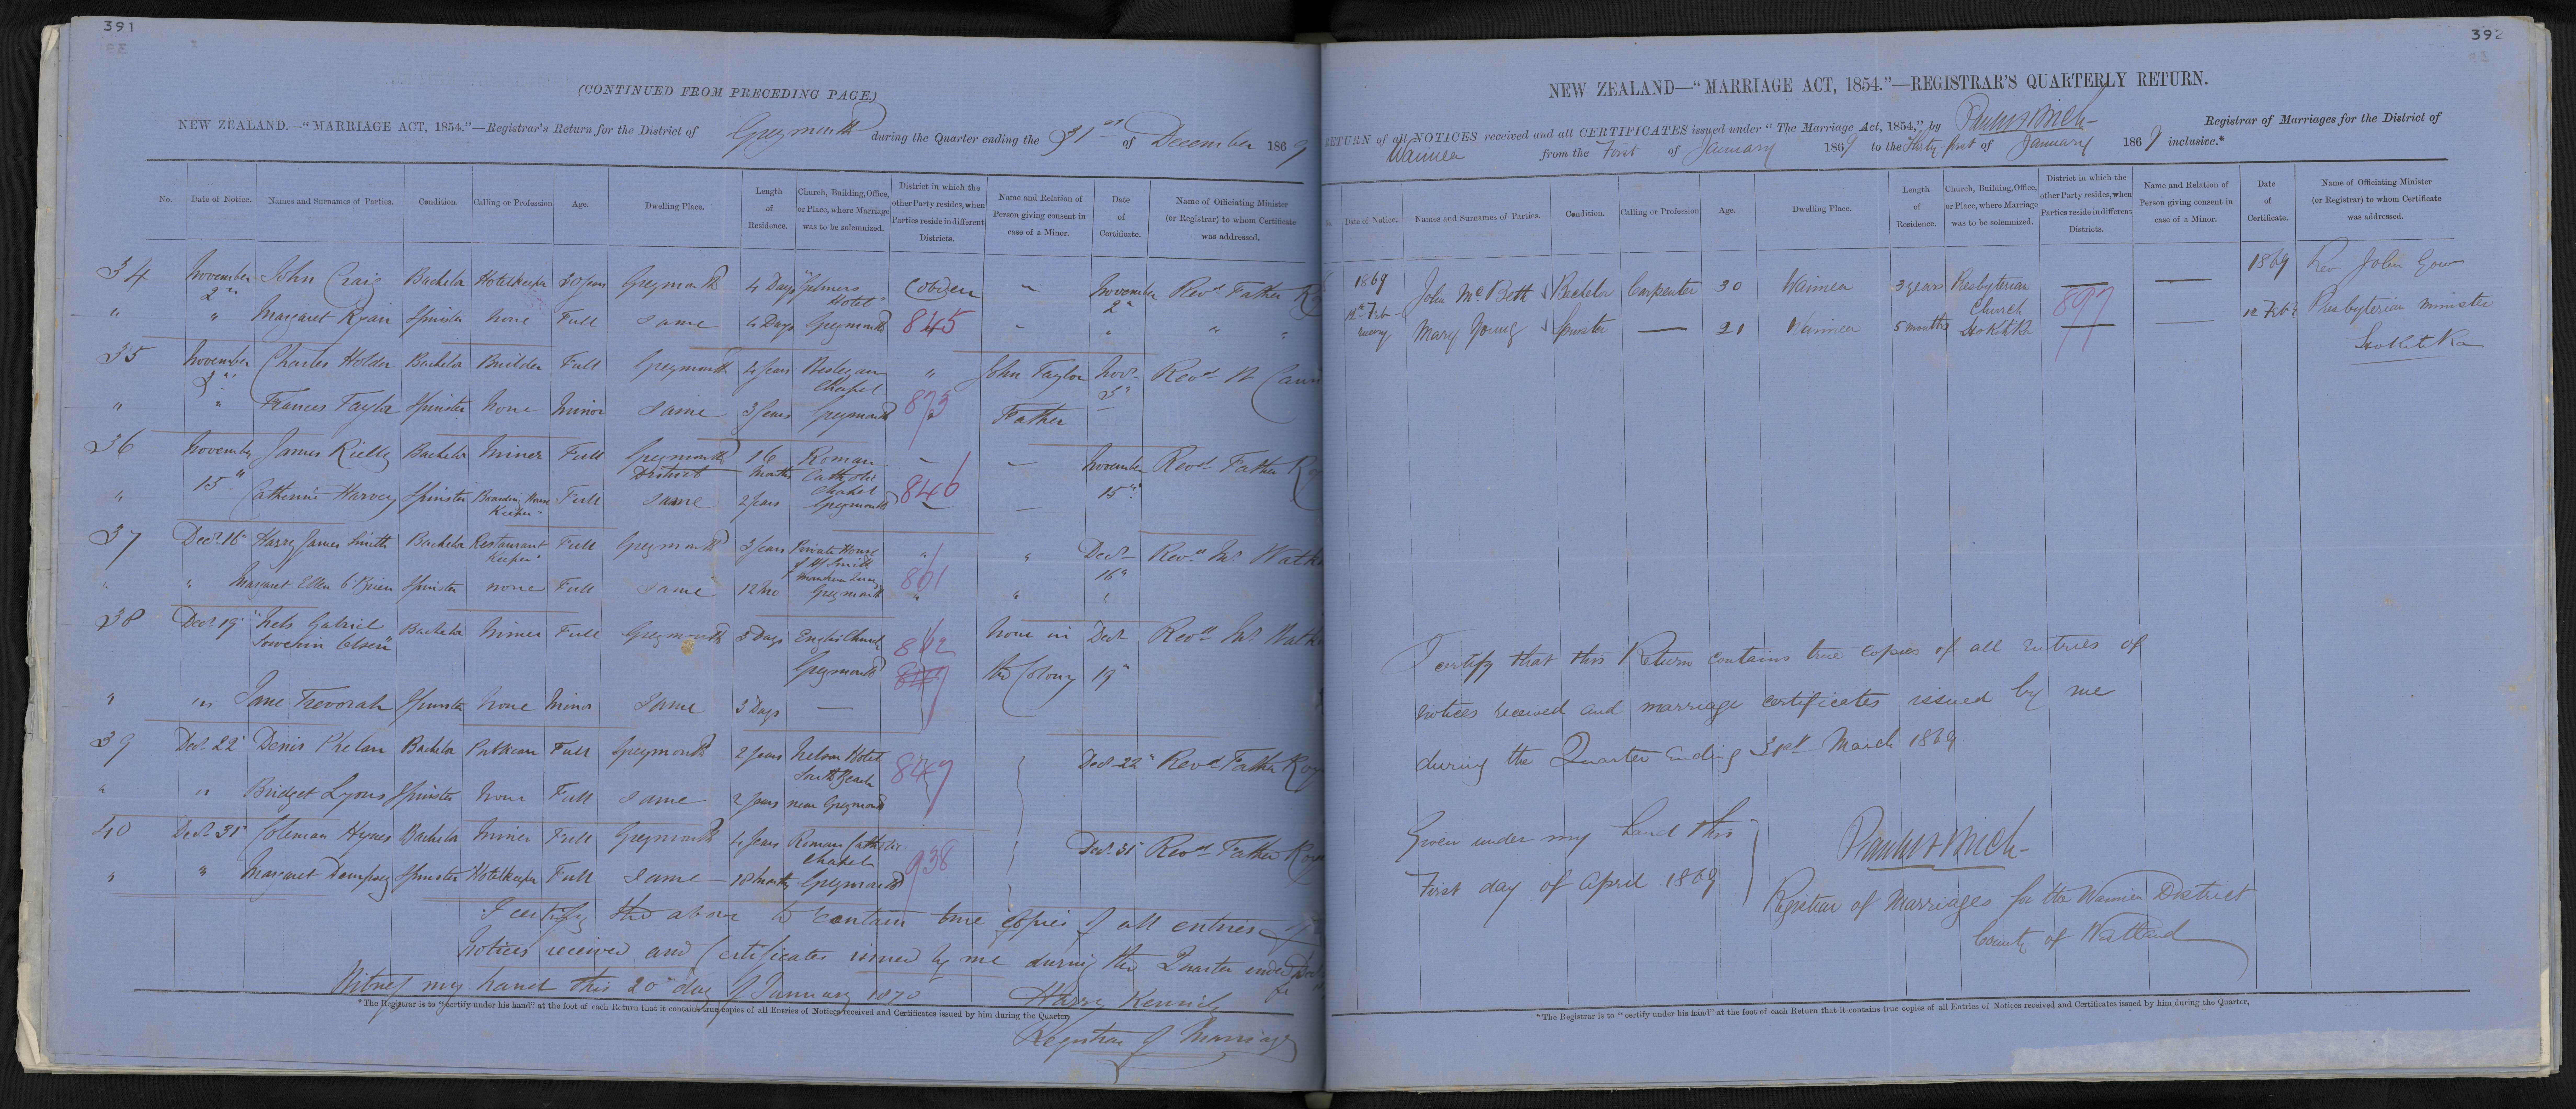 391
(CONTINUED FROM PRECEDING PAGE.)
NEW ZEALAND.—"MARRIAGE ACT, 1854."—Registrar's Return for the District of Greymouth during the Quarter ending the 31st of December 1869
No. Date of Notice. Names and Surnames of Parties. Condition. Calling or Profession Age. Dwelling Place. Length of Residence. Church, Building, Office, or Place, where Marriage was to be solemnized. District in which the other Party resides, when Parties reside in different Districts. Name and Relation of Person giving consent in case of a Minor. Date of Certificate. Name of Officiating Minister (or Registrar) to whom Certificate was addressed.
34 November 2" John Craig Bachelor Hotelkeeper 30 years Greymouth 4 Days Gilmers Hotel Cobden " November 2" Revd Father
" " Margaret Ryan Spinster None Full Same 4 Days Greymouth 845 " " " "
35 November 3" Charles Holder Bachelor Builder Full Greymouth 4 years Wesleyan Chapel " John Taylor Novr 3" Revd
" " Frances Taylor Spinster None Minor Same 3 years Greymouth 873 Father
36 November 15" James Rielly Bachelor Miner Full Greymouth District 16 Months Roman Catholic Chapel — — November 15" Revd Father
" Catherine Harvey Spinster Boarding House Keeper Full Same 2 years Greymouth 846 —
37 Decr 16" Harry James Smith Bachelor Restaurant Keeper Full Greymouth 3 years Private House of H J Smith " " Decr 16" Revd Jno
" " Margaret Ellen O'Brien Spinster none Full Same 12 mo Greymouth 861 " "
38 Decr 19" Nels Gabriel Olsen Bachelor Miner Full Greymouth 3 Days English Church Greymouth 862 None in the Colony Decr 19" Revd Jno
" " Jane Trevorah Spinster None Minor Same 3 Days — 849
39 Decr 22" Denis Phelan Bachelor Publican Full Greymouth 2 years Nelson Hotel South Beach 847 Decr 22" Revd Father
" " Bridget Lyons Spinster None Full Same 2 years near Greymouth
40 Decr 31" Coleman Hynes Bachelor Miner Full Greymouth 4 years Roman Catholic Chapel Decr 31" Revd Father
" " Margaret Dempsey Spinster Hotelkeeper Full Same 18 months Greymouth 938
I certify the above to contain true copies of all entries of
Notices received and Certificates issued by me during the Quarter ended
Witness my hand this 20" day of January 1870
Harry Kenrick
*The Registrar is to "certify under his hand" at the foot of each Return that it contains true copies of all Entries of Notices received and Certificates issued by him during the Quarter.
Registrar of Marriages
392
NEW ZEALAND—"MARRIAGE ACT, 1854."—REGISTRAR'S QUARTERLY RETURN.
RETURN of all NOTICES received and all CERTIFICATES issued under "The Marriage Act, 1854," by Registrar of Marriages for the District of
Waimea from the First of January 1869 to the Thirty first of January 1869 inclusive.*
Date of Notice. Names and Surnames of Parties. Condition. Calling or Profession Age. Dwelling Place. Length of Residence. Church, Building, Office, or Place, where Marriage was to be solemnized. District in which the other Party resides, when Parties reside in different Districts. Name and Relation of Person giving consent in case of a Minor. Date of Certificate. Name of Officiating Minister (or Registrar) to whom Certificate was addressed.
1869 12th February John McBeth Bachelor Carpenter 30 Waimea 3 years Presbyterian Church — — 1869 Rev John Gow
Mary Young Spinster — 21 Waimea 5 months Hokitika 897 — — 12 Feby Presbyterian Minister
Hokitika
I certify that this Return contains true copies of all entries of
notices received and marriage certificates issued by me
during the Quarter ending 31st March 1869
Given under my hand this
First day of April 1869
Registrar of Marriages for the Waimea District
County of Westland
*The Registrar is to "certify under his hand" at the foot of each Return that it contains true copies of all Entries of Notices received and Certificates issued by him during the Quarter.